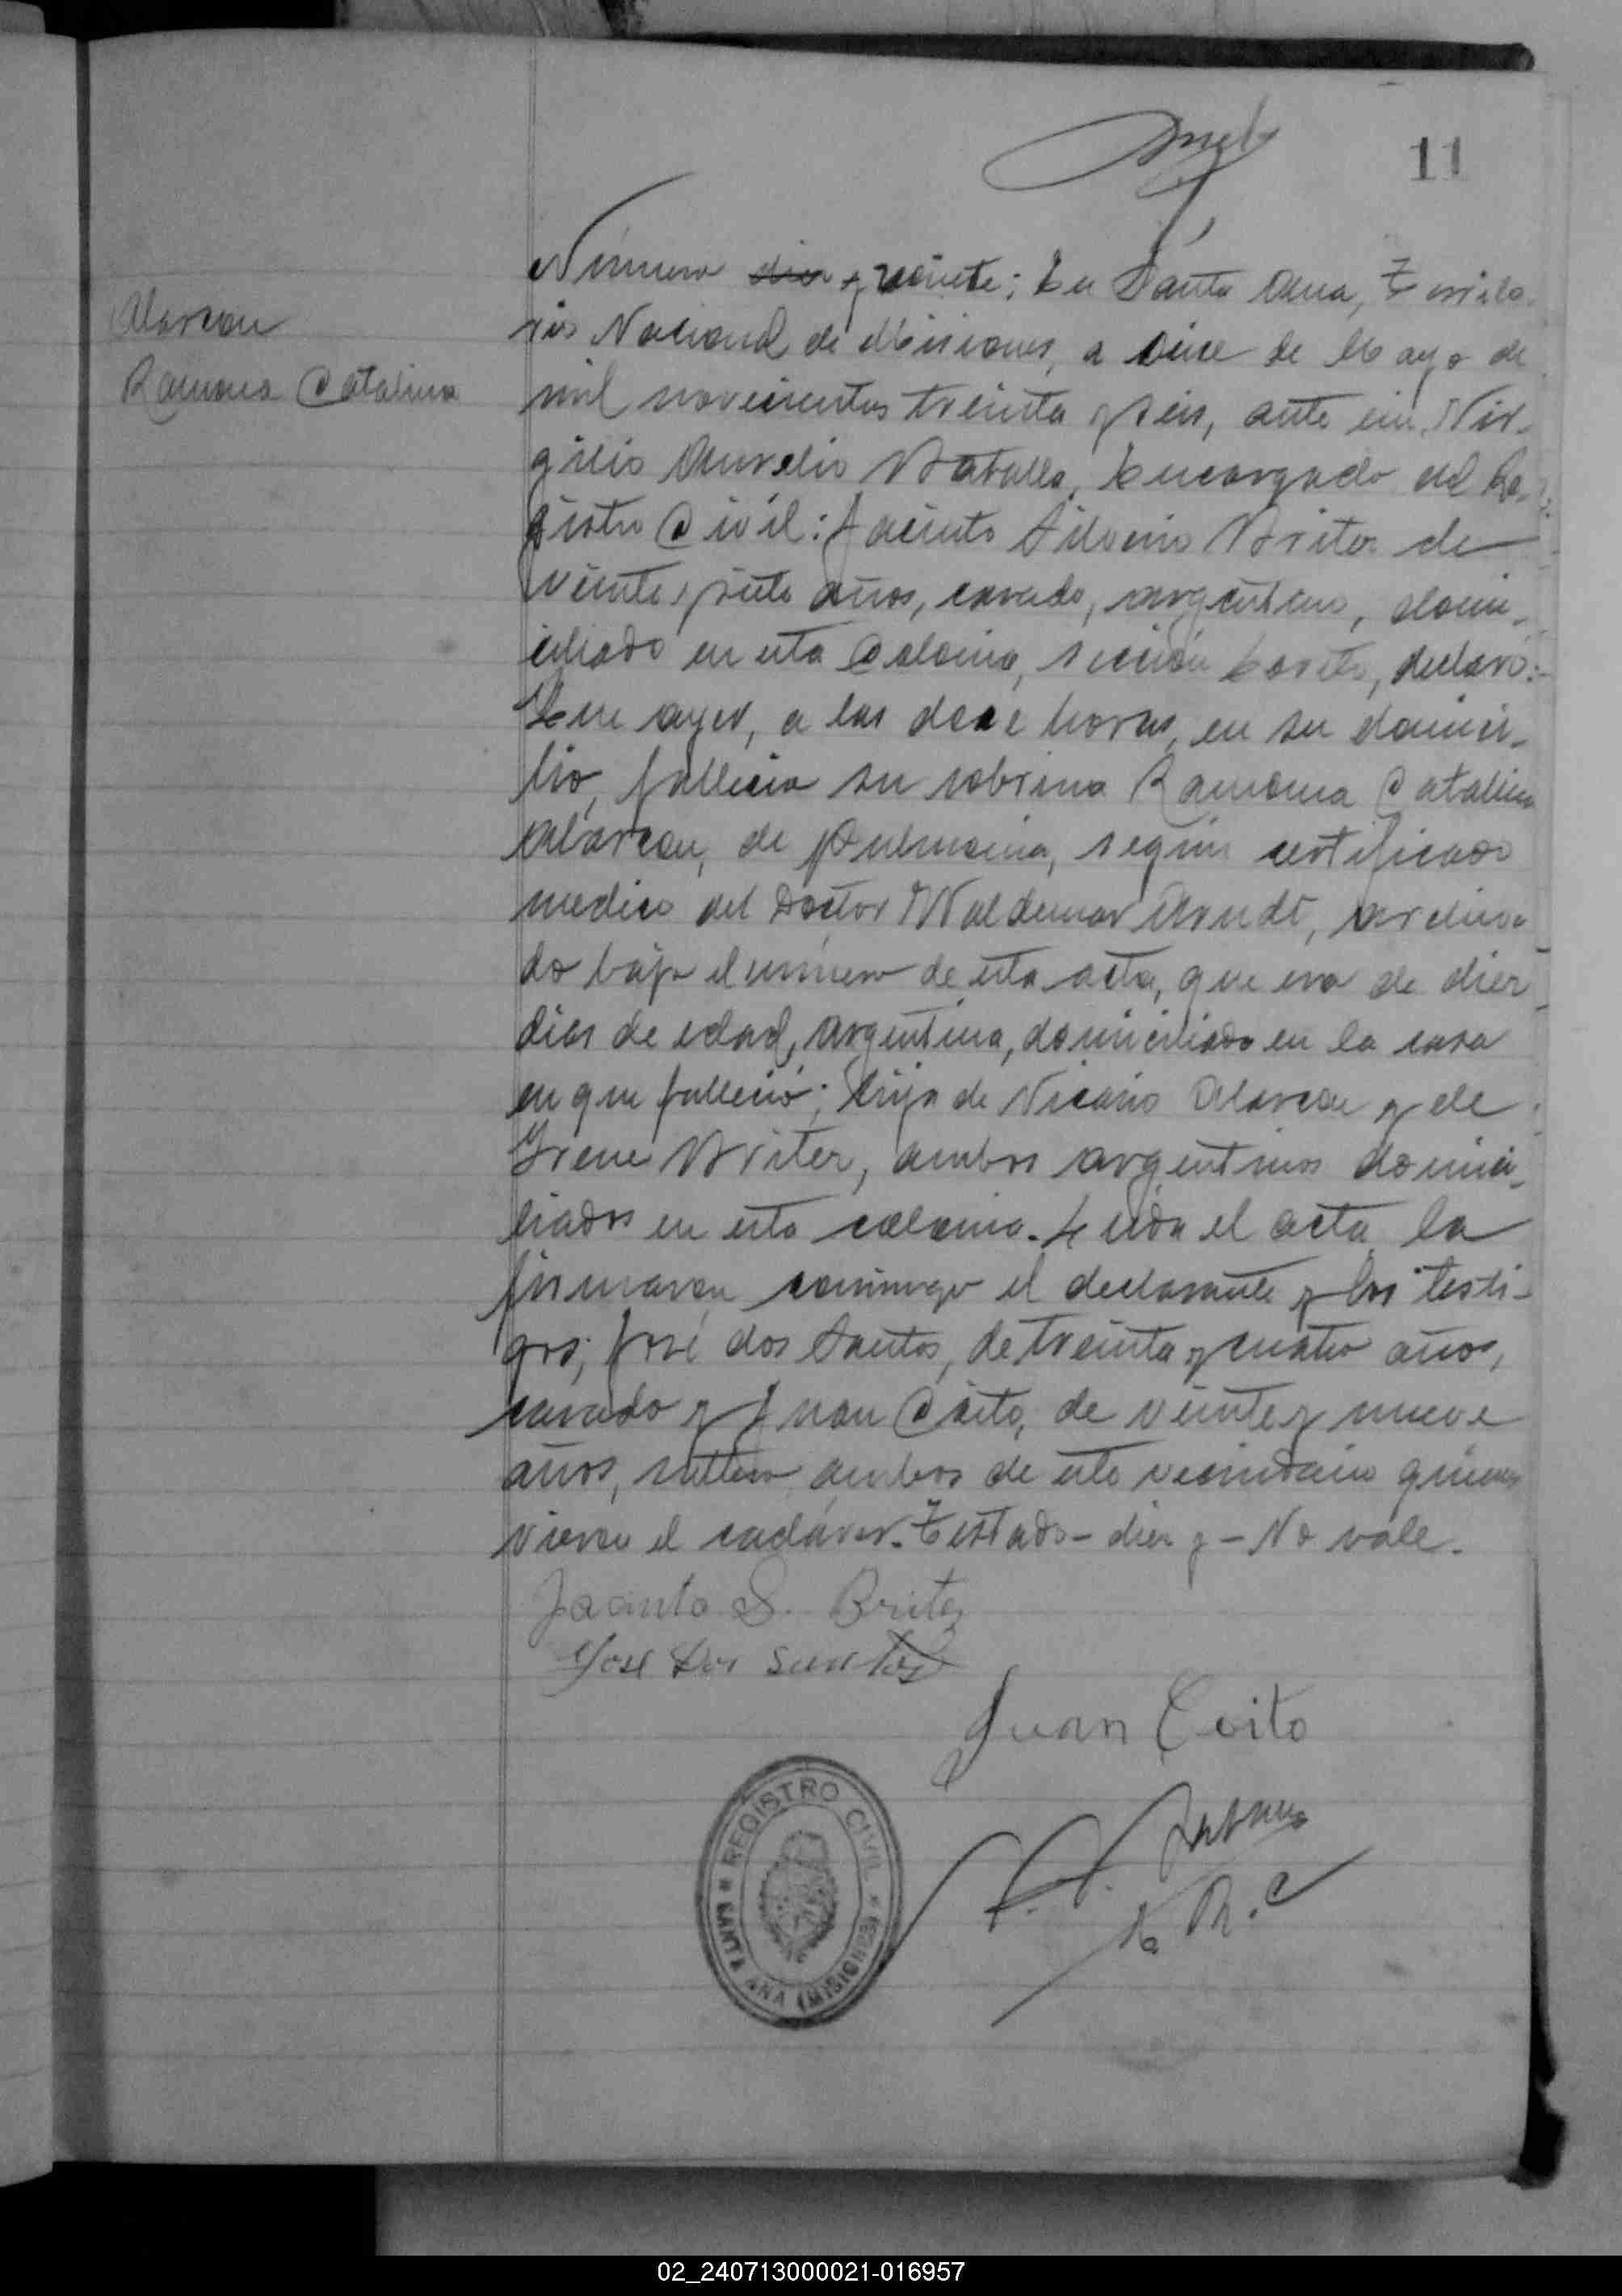 11
Alarcon
Ramona Catalina
Número diez y veinte; En Santa Ana, Territo-
rio Nacional de Misiones, a once de Mayo de
mil novecientos treinta y seis, ante mi, Vir-
gilio Aurelio Encargado del Re-
gistro Civil: Jacinto Silverio Britez de
veinte y siete años, casado, argentino, domi-
ciliado en esta Colonia, sección declaró:
Que ayer, a las doce horas, en su domici-
lio, fallecio su sobrina Ramona Catalina
Alarcon, de Pulmonia, según certificado
medico del Doctor Waldemar Arndt, archiva
do bajo el número de esta acta, que era de diez
dias de edad, argentina, domiciliada en la casa
en que falleció; hija de Nicasio Alarcon y de
Irene Britez, ambos argentinos domici-
liados en esta colonia. Leida el acta la
firmaron conmigo el declarante y los testi-
gos; José dos Santos, de treinta y cuatro años,
casado y Juan Coito, de veinte y nueve
años, soltero ambos de este vecindario quienes
vieron el cadáver. Testado - diez y - No vale.
Jacinto S. Britez
Jose Dos Santos
Juan Coito
E R. C
REGISTRO CIVIL
SANTA ANA (MISIONES)
02_240713000021-016957